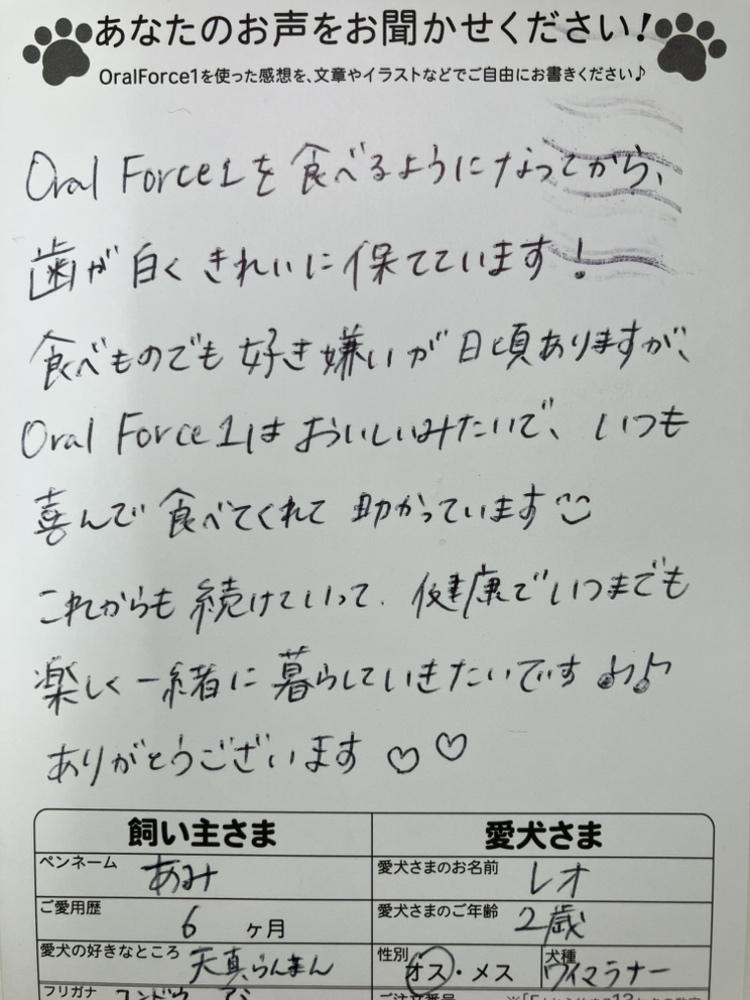 あなたのお声をお聞かせください!
OralForce1を使った感想を、文章やイラストなどでご自由にお書きください♪
Oral Force1を食べるようになってから、
歯が白くきれいに保てています!
食べものでも好き嫌いが日頃ありますが、
Oral Force1はおいしいみたいで、いつも
喜んで食べてくれて助かっています
これからも続けていって、健康でいつまでも
楽しく一緒に暮らしていきたいです♪♪
ありがとうございます♡♡
飼い主さま
愛犬さま
ペンネーム あみ
愛犬さまのお名前 レオ
ご愛用歴 6 ヶ月
愛犬さまのご年齢 2歳
愛犬の好きなところ 天真らんまん
性別 オス・メス
犬種 ワイマラナー
フリガナ
ご注文番号